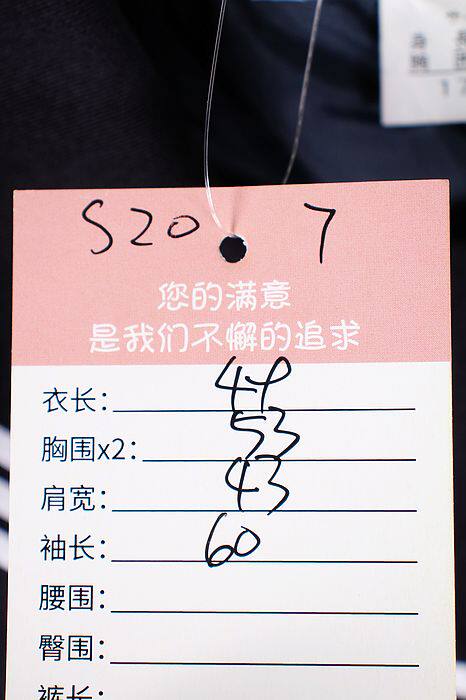 身
1 7
S20 7
您的满意
是我们不懈的追求
衣长: 49
胸围x2: 53
肩宽: 43
袖长: 60
腰围:
臀围:
裤长: